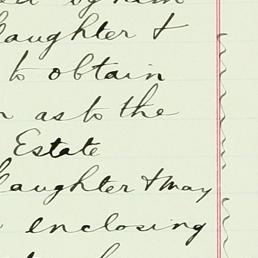 by him
daughter &
to obtain
as to the
Estate
daughter & may
enclosing